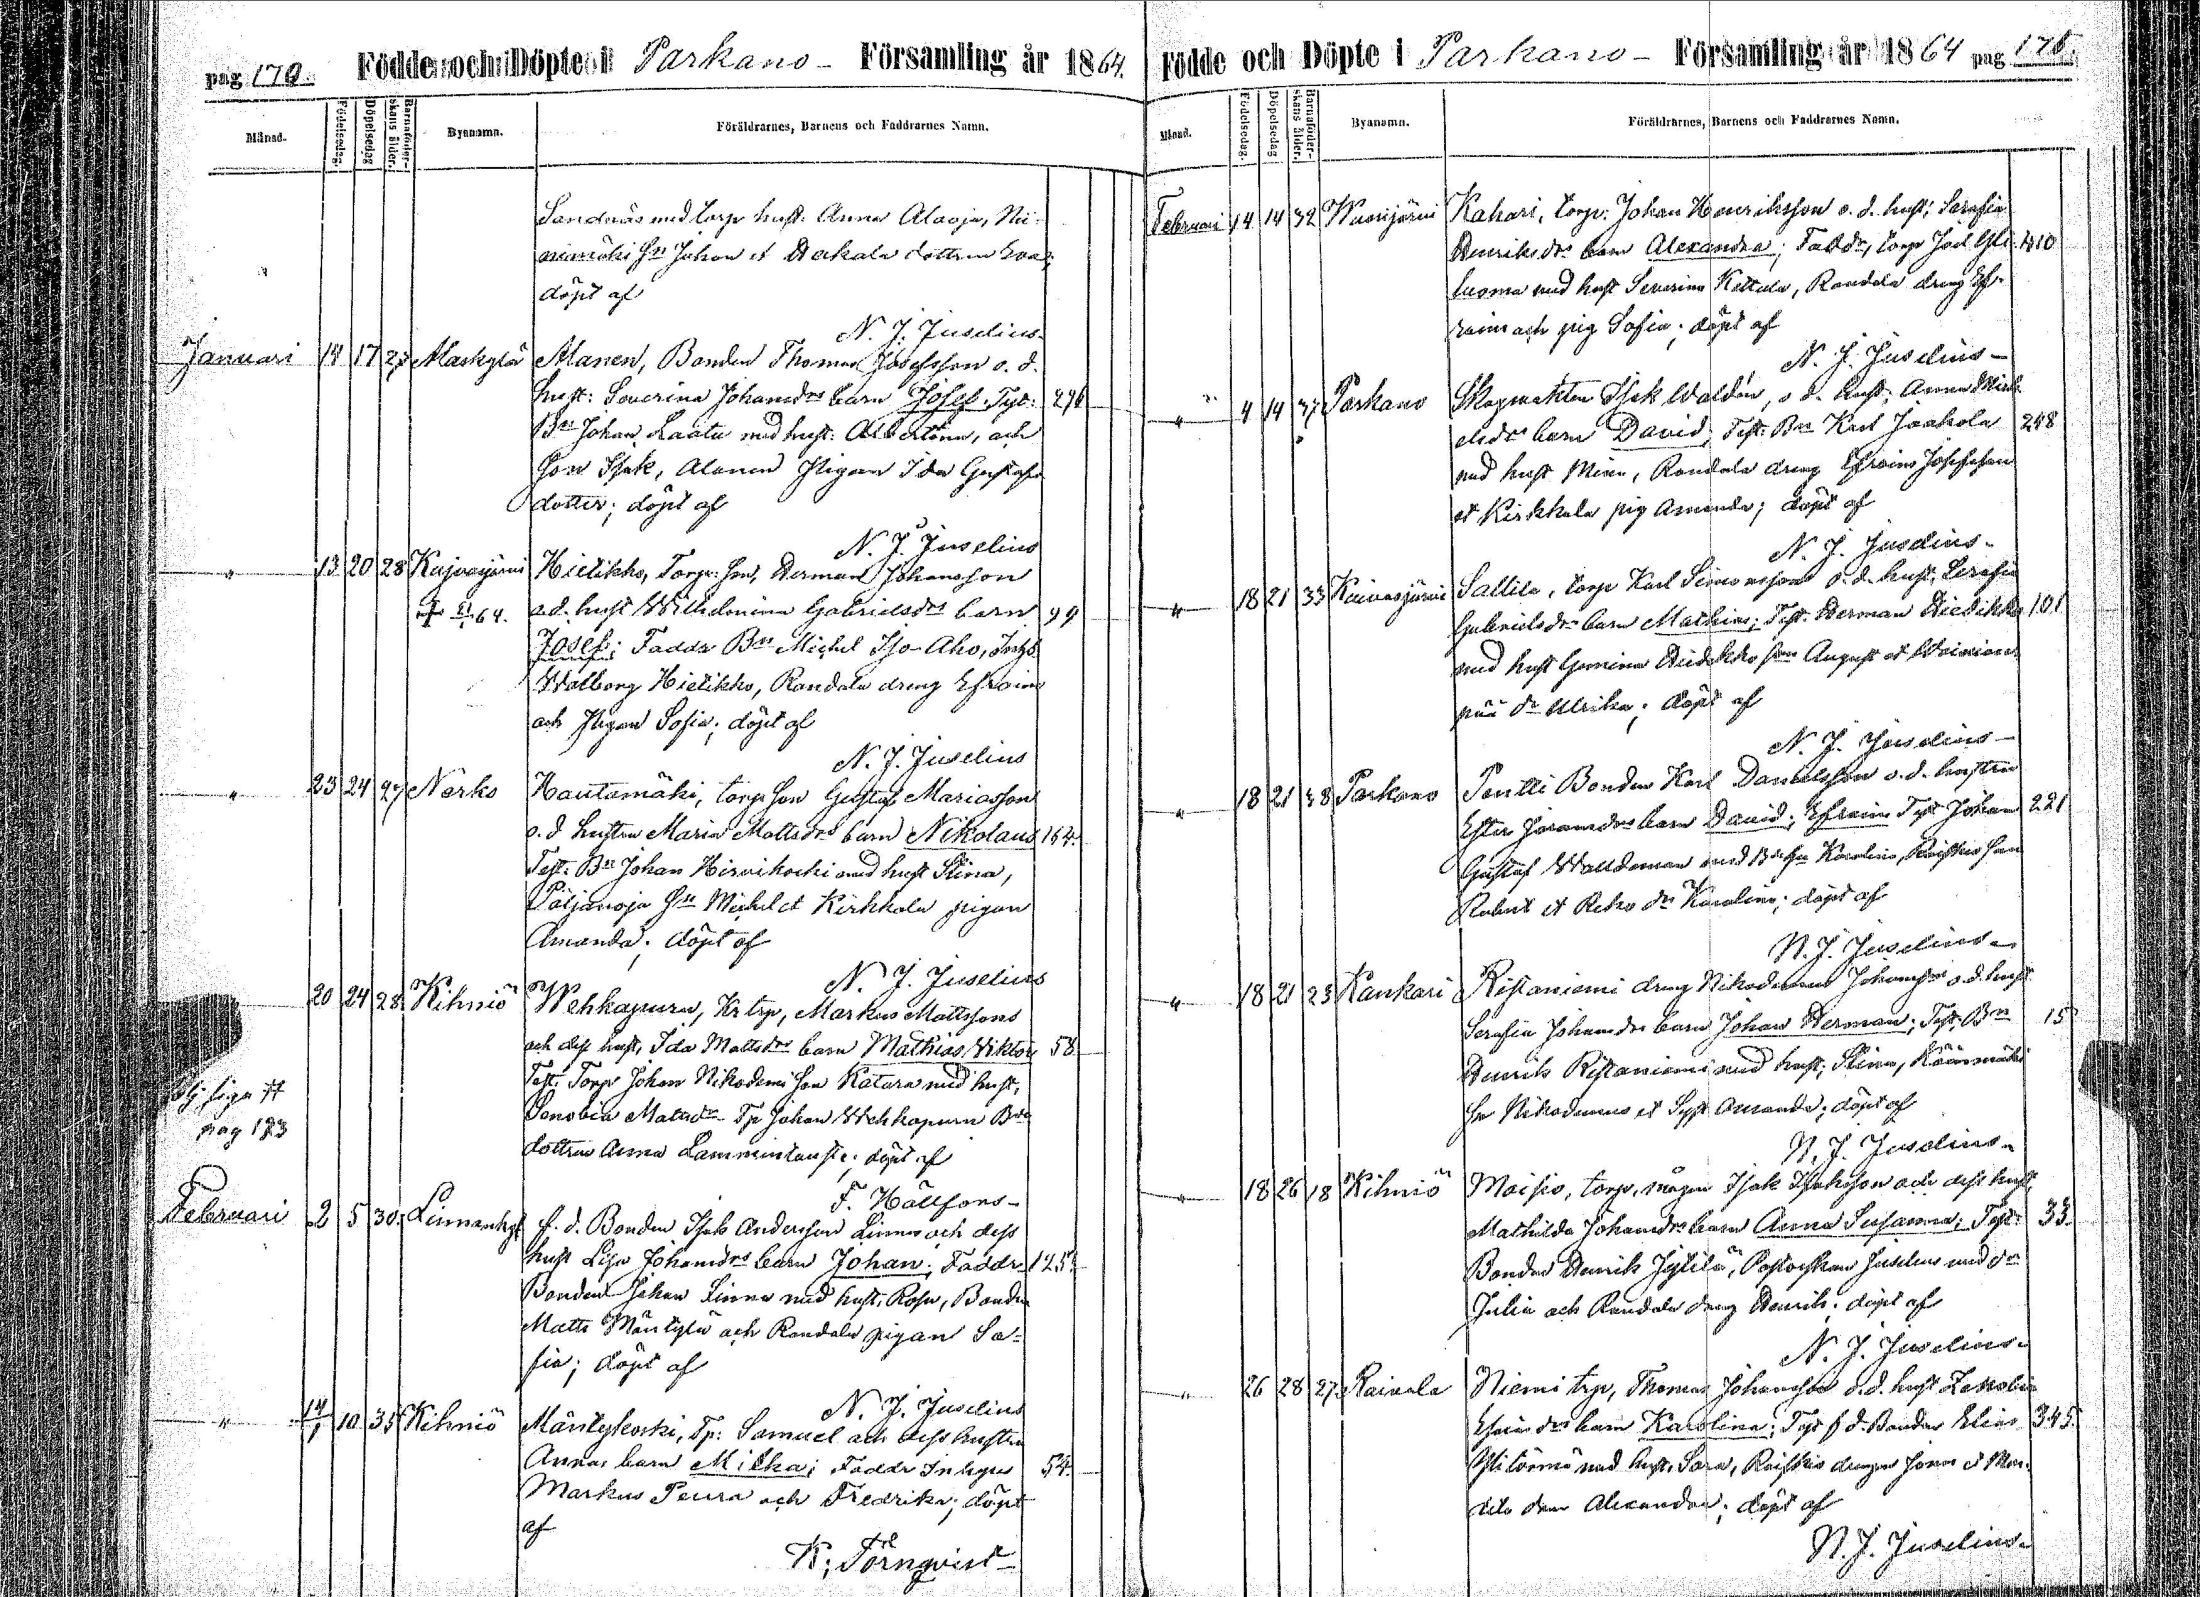 pag 170. Födde och Döpte i Parkano Församling år 1864.
Månad. Födelsedag. Döpelsedag Barnaföderskans ålder. Byanamn. Föräldrarnes, Barnens och Faddrarnes Namn.
Sandnäs med torp hust: Anna Alaoja, Nii-
nimäki Sn Johan et Heikala dottren Eva;
döpt af
N. J. Juselius
Januari 14 17 23 Maskylä Alanen, Bonden Thomas Josefsson o. d.
hust: Severina Johansdr barn Josef. Tyt: 276
Bn Johan Laatu med hust: Albertina, och
Son Isak, Alanen Pigan Ida Gustafs
dotter; döpt af
N. J. Juselius
" 13 20 28 Kujvasjärvi Hietikko, Torp: Son, Herman Johansson
64. o.d. hust Wilhelmina Gabrielsdr barn 99
Josef; Faddr Bn Michel Iso-Aho, Inhs
Walborg Hietikko, Randala dreng Efraim
och Pigan Sofia; döpt af
N. J. Juselius
" 23 24 27 Nerko Hautamäki, torp Son Gustaf Mariasson
o. d hustru Maria Mattsdr barn Nikolaus 154.
Test: Bn Johan Hirvikoski med hust Stina,
Päljänoja Sn Michel et Kirkkala pigan
Amanda; döpt af
N. J. Juselius
20 24 28 Kihniö Wehkapuru, Kr trp, Markus Mattssons
och dess hust, Ida Mattsdr barn Mathias Viktor 58
Test. Torp Johan Nikodemi Son Katara med hust,
Senobia Matsdr Tp Johan Wehkapuru Bn
dottren Anna Lammintausta; döpt af
F. Hällfors
pag 173
Februari 2 5 30 Linnankyl f. d. Bonden Isak Andersson Linna och dess
hust Lisa Johansdr barn Johan; Faddr 125
Bonden Johan Linna med hust, Rosa, Bonden
Matts Mäntylä och Randala pigan So-
fia; döpt af
N. J. Juselius
" 14/1 10 35 Kihniö Mäntykoski, Tp: Samuel och dess hustru
Annas barn Milka; Faddr Inhyses 54.
Markus Peura och Fredrika; döpt
af
K; Törnqvist

Födde och Döpte i Parkano Församling år 1864 pag 171.
Månad. Födelsedag. Döpelsedag Barnaföderskans ålder. Byanamn. Föräldrarnes, Barnens och Faddrarnes Namn.
Februari 14 14 32 Wuorijärvi Kahari, torp: Johan Henriksson o. d. hust; Serafia
Henriksdr barn Alexandra; Faddr, torp Joel Yli- 410
luoma med hust Severina Kettula, Randala dreng Ef-
raim och pig Sofia; döpt af
N. J. Juselius
" 4 14 37 Parkano Skogvakten Isak Waldén, o. d. hust; Anna Mick-
elsdr barn David; Test: Bn Karl Jaakola 248
med hust Mina, Randala dreng Efraim Josefsson
et Kirkkala pig Amanda; döpt af
N. J. Juselius
" 18 21 33 Kuivasjärvi Sallila, torp Karl Simonsson o. d. hust, Serafia
Gabrielsdr barn Mathias; Test. Herman Hietikko 101
med hust Gemina Hietikko son August et Wäiniön-
pää dr Ulrika; döpt af
N. J. Juselius
" 18 21 38 Parkano Pentti Bonden Karl Danielsson o. d. hustru
Ester Joramsdr barn David; Efraim Tyt Johan 221
Gustaf Walldeman med Karolina, Raiskio son
Robert et Reko dr Karolina; döpt af
N. J. Juselius
" 18 21 23 Kankari Ristaniemi dreng Nikodemus Johansson o.d. hust
Serafia Johansdr barn Johan Herman; Test: Bn 15
Henrik Ristaniemi med hust; Stina, Käärmäki
Sn Nikodemus et Syst Amanda; döpt af
N. J. Juselius
" 18 26 18 Kihniö Moisio, torp, mågen Isak Isaksson och dess hust,
Mathilda Johansdr barn Anna Susanna; Test: 33.
Bonden Henrik Jyllilä, Pastorskan Juselius med dr
Julia och Randala dreng Henrik; döpt af
N. J. Juselius
" 26 28 27 Raivala Niemi trp, Thomas Johansson o. d. hust Zenobia
Esaiasdr barn Karolina; Tyt f. d. Bonden Elias 345.
Ylitörmä med hust, Sara, Raiskio drengen Jonas et Man-
tila dren Alexandra; döpt af
N. J. Juselius